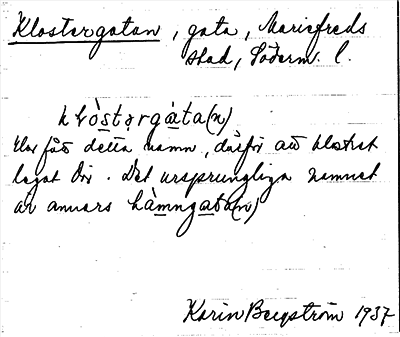 Klostergatan, gata, Mariefreds
stad, Söderm. l.
klòstərgàta(n)
Har fått detta namn, därför att klostret
legat där. Det ursprungliga namnet
är annars hàmngata(n)
Karin Bergström 1937